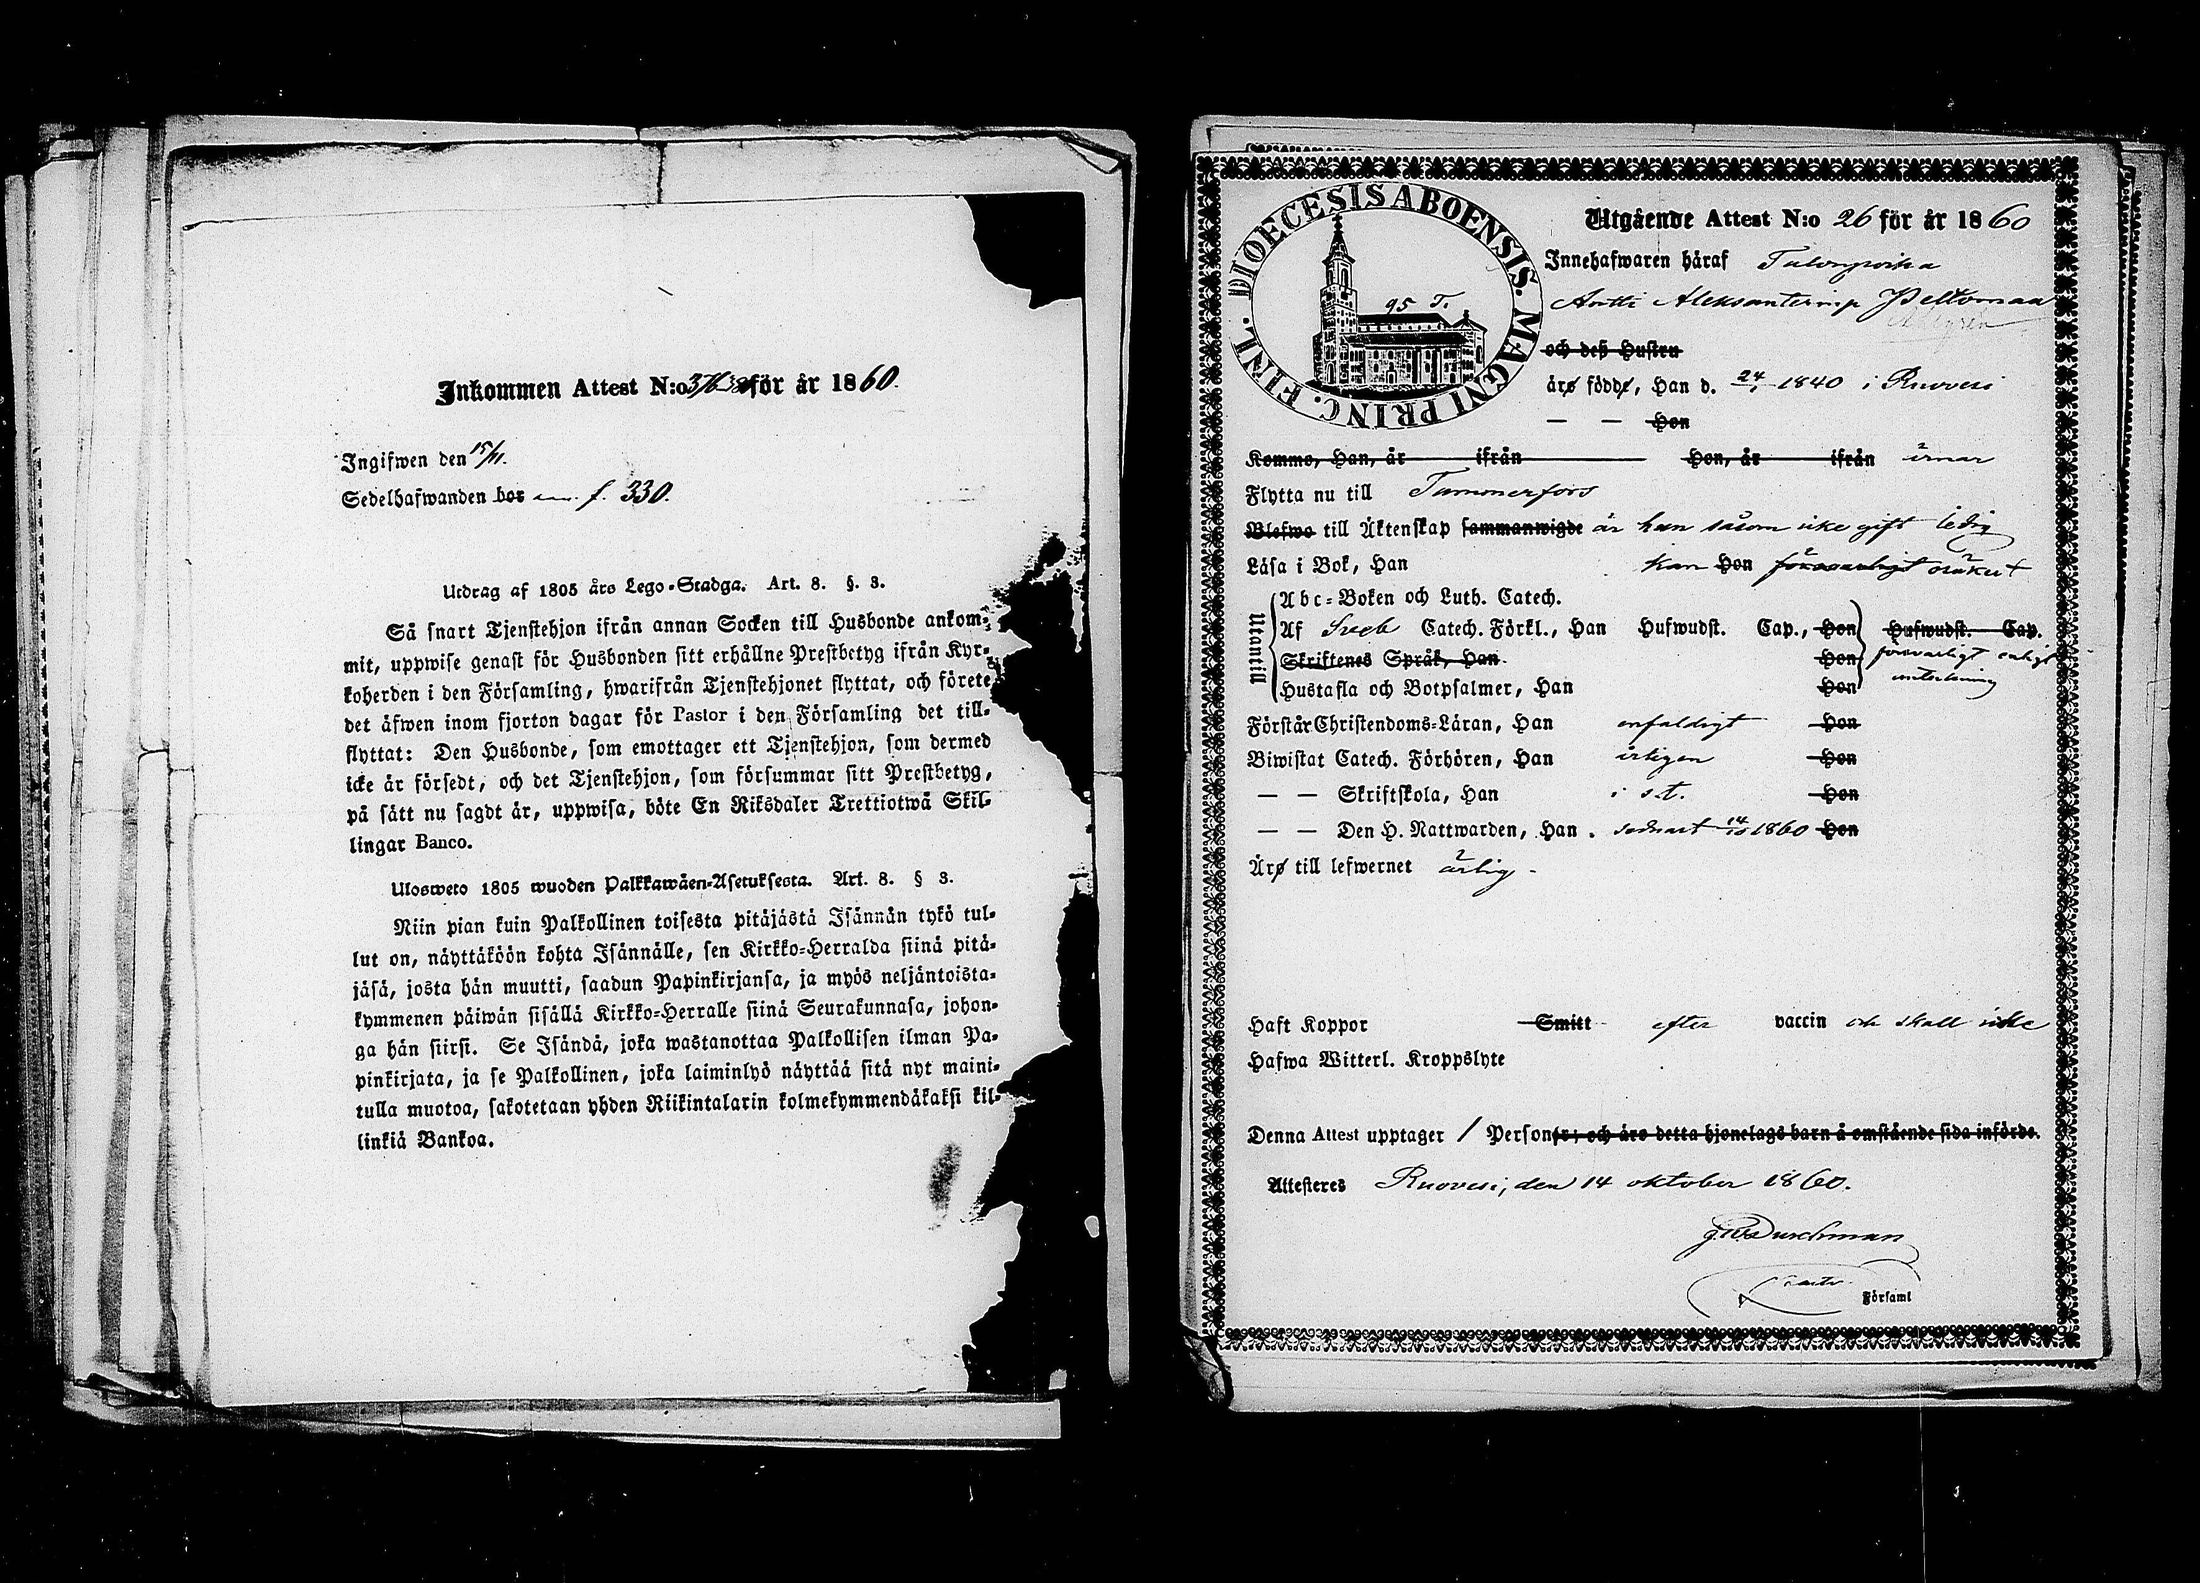 Inkommen Attest N:o för år 1860.
Ingifwen den 15/11.
Sedelhafwanden bor f. 330.
Utdrag af 1805 års Lego-Stadga. Art. 8. §. 3.
Så snart Tjenstehjon ifrån annan Socken till Husbonde ankom-
mit, uppwise genast för Husbonden sitt erhållne Prestbetyg ifrån Kyr-
koherden i den Församling, hwarifrån Tjenstehjonet flyttat, och förete
det äfwen inom fjorton dagar för Pastor i den Församling det till-
flyttat: Den Husbonde, som emottager ett Tjenstehjon, som dermed
icke är försedt, och det Tjenstehjon, som försummar sitt Prestbetyg,
på sätt nu sagdt är, uppwisa, böte En Riksdaler Trettiotwå Skil-
lingar Banco.
Ulosweto 1805 wuoden Palkkawäen-Asetuksesta. Art. 8. § 3.
Niin pian kuin Palkollinen toisesta pitäjästä Isännän tykö tul-
lut on, näyttäköön kohta Isännälle, sen Kirkko-Herralda siinä pitä-
jäsä, josta hän muutti, saadun Papinkirjansa, ja myös neljäntoista-
kymmenen päiwän sisällä Kirkko-Herralle siinä Seurakunnasa, johon-
ga hän siirsi. Se Isändä, joka wastanottaa Palkollisen ilman Pa-
pinkirjata, ja se Palkollinen, joka laiminlyö näyttää sitä nyt maini-
tulla muotoa, sakotetaan yhden Riikintalarin kolmekymmendäkaksi kil-
linkiä Bankoa.
DIOECESIS ABOENSIS. MAGNI PRINC. FINL.
95 T.
Utgående Attest N:o 26 för år 1860
Innehafwaren häraf
Antti Aleksanterinp Peltomaa
och deß Hustru
äro födde, Han d. 24/ 1840 i Ruovesi
— — Hon
Kommo, Han, år ifrån Hon, år ifrån
Flytta nu till Tammerfors
Blefwo till Äktenskap sammanwigde är han såsom icke gift ledig
Läsa i Bok, Han kan Hon försvarligt
Utantill
Abc-Boken och Luth. Catech.
Af Sveb Catech. Förkl., Han Hufwudst. Cap., Hon Hufwudst. Cap.
Skriftenes Språk, Han Hon försvarligt enligt
Hustafla och Botpsalmer, Han Hon
Förstår Christendoms-Läran, Han enfaldigt Hon
Biwistat Catech. Förhören, Han årligen Hon
— — Skriftskola, Han i s.t. Hon
— — Den H. Nattwarden, Han. sednast 14/10 1860 Hon
Äro till lefwernet ärlig.
Haft Koppor Smitt efter vaccin och skall icke
Hafwa Witterl. Kroppslyte
Denna Attest upptager 1 Person(er; och äro detta hjonelags barn å omstående sida införde.
Attesteres Ruovesi, den 14 oktober 1860.
Durchman
Församl